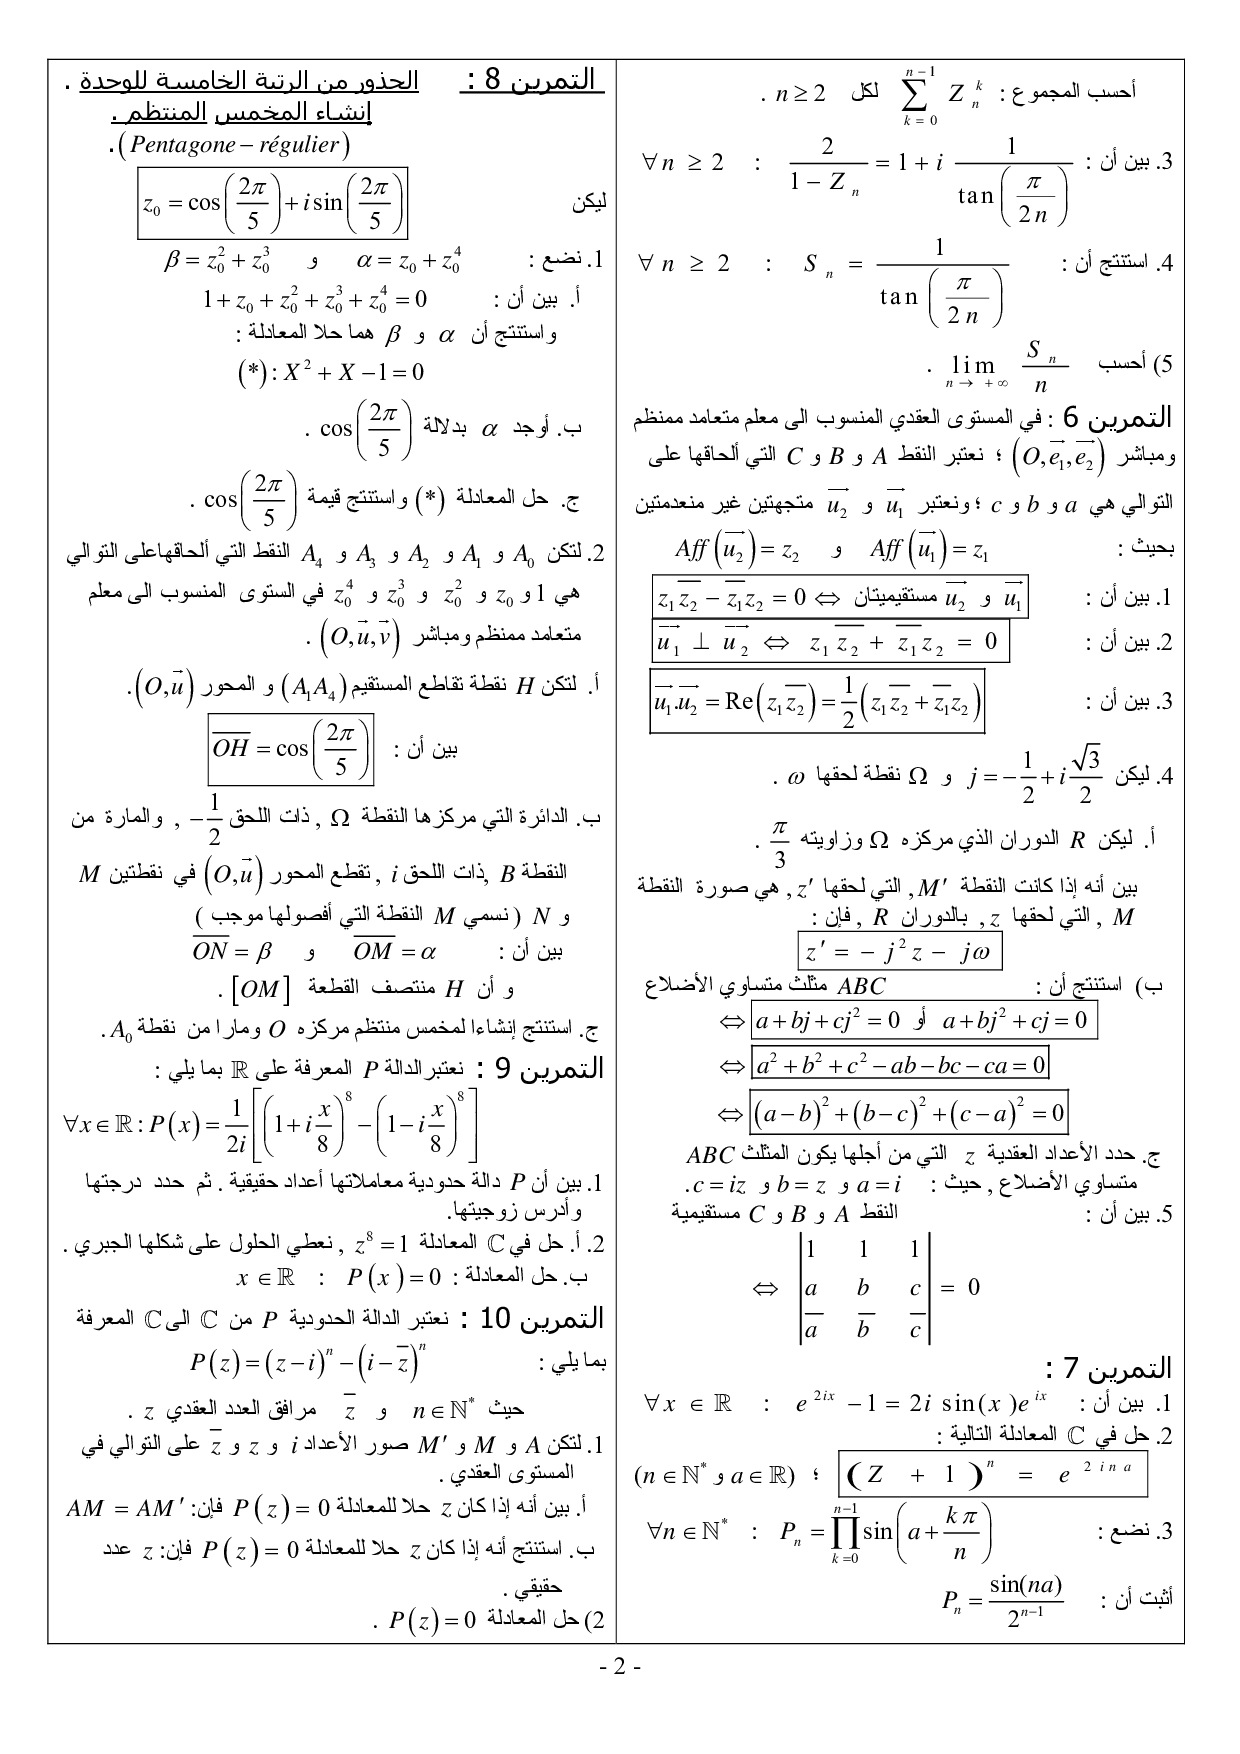 أحسب المجموع : $\sum_{k=0}^{n-1} Z_n^k$ لكل $n \geq 2$ .
3. بين أن : $\forall n \geq 2 \; : \; \frac{2}{1-Z_n} = 1 + i\frac{1}{\tan\left(\frac{\pi}{2n}\right)}$
4. استنتج أن : $\forall n \geq 2 \; : \; S_n = \frac{1}{\tan\left(\frac{\pi}{2n}\right)}$
5) أحسب $\lim_{n \to +\infty} \frac{S_n}{n}$ .
التمرين 6 : في المستوى العقدي المنسوب الى معلم متعامد ممنظم
ومباشر $(O,\vec{e_1},\vec{e_2})$ ؛ نعتبر النقط A و B و C التي ألحاقها على
التوالي هي a و b و c ؛ ونعتبر $\vec{u_1}$ و $\vec{u_2}$ متجهتين غير منعدمتين
بحيث : $Aff(\vec{u_1}) = z_1$ و $Aff(\vec{u_2}) = z_2$
1. بين أن : $\vec{u_1}$ و $\vec{u_2}$ مستقيميتان $\Leftrightarrow z_1\overline{z_2} - \overline{z_1}z_2 = 0$
2. بين أن : $\vec{u_1} \perp \vec{u_2} \Leftrightarrow z_1\overline{z_2} + \overline{z_1}z_2 = 0$
3. بين أن : $\vec{u_1}.\vec{u_2} = \mathrm{Re}(z_1\overline{z_2}) = \frac{1}{2}(z_1\overline{z_2} + \overline{z_1}z_2)$
4. ليكن $j = -\frac{1}{2} + i\frac{\sqrt{3}}{2}$ و Ω نقطة لحقها ω .
أ. ليكن R الدوران الذي مركزه Ω وزاويته $\frac{\pi}{3}$ .
بين أنه إذا كانت النقطة M′ , التي لحقها z′ , هي صورة النقطة
M , التي لحقها z , بالدوران R , فإن :
$z' = -j^2 z - j\omega$
ب) استنتج أن : ABC مثلث متساوي الأضلاع
$\Leftrightarrow a + bj + cj^2 = 0$ أو $a + bj^2 + cj = 0$
$\Leftrightarrow a^2 + b^2 + c^2 - ab - bc - ca = 0$
$\Leftrightarrow (a-b)^2 + (b-c)^2 + (c-a)^2 = 0$
ج. حدد الأعداد العقدية z التي من أجلها يكون المثلث ABC
متساوي الأضلاع , حيث : $a = i$ و $b = z$ و $c = iz$.
5. بين أن : النقط A و B و C مستقيمية
$\Leftrightarrow \begin{vmatrix} 1 & 1 & 1 \\ a & b & c \\ \overline{a} & \overline{b} & \overline{c} \end{vmatrix} = 0$
التمرين 7 :
1. بين أن : $\forall x \in \mathbb{R} \; : \; e^{2ix} - 1 = 2i\sin(x)e^{ix}$
2. حل في ℂ المعادلة التالية :
$(Z+1)^n = e^{2ina}$ ؛ ($a \in \mathbb{R}$ و $n \in \mathbb{N}^*$)
3. نضع : $\forall n \in \mathbb{N}^* \; : \; P_n = \prod_{k=0}^{n-1} \sin\left(a + \frac{k\pi}{n}\right)$
أثبت أن : $P_n = \frac{\sin(na)}{2^{n-1}}$
التمرين 8 : الجذور من الرتبة الخامسة للوحدة .
إنشاء المخمس المنتظم .
(Pentagone − régulier).
ليكن $z_0 = \cos\left(\frac{2\pi}{5}\right) + i\sin\left(\frac{2\pi}{5}\right)$
1. نضع : $\alpha = z_0 + z_0^4$ و $\beta = z_0^2 + z_0^3$
أ. بين أن : $1 + z_0 + z_0^2 + z_0^3 + z_0^4 = 0$
واستنتج أن α و β هما حلا المعادلة :
$(*) : X^2 + X - 1 = 0$
ب. أوجد $\cos\left(\frac{2\pi}{5}\right)$ بدلالة α .
ج. حل المعادلة (*) واستنتج قيمة $\cos\left(\frac{2\pi}{5}\right)$ .
2. لتكن $A_0$ و $A_1$ و $A_2$ و $A_3$ و $A_4$ النقط التي ألحاقهاعلى التوالي
هي 1 و $z_0$ و $z_0^2$ و $z_0^3$ و $z_0^4$ في الستوى المنسوب الى معلم
متعامد ممنظم ومباشر $(O,\vec{u},\vec{v})$ .
أ. لتكن H نقطة تقاطع المستقيم $(A_1A_4)$ و المحور $(O,\vec{u})$.
بين أن : $\overline{OH} = \cos\left(\frac{2\pi}{5}\right)$
ب. الدائرة التي مركزها النقطة Ω , ذات اللحق $-\frac{1}{2}$ , والمارة من
النقطة B ,ذات اللحق i , تقطع المحور $(O,\vec{u})$ في نقطتين M
و N ( نسمي M النقطة التي أفصولها موجب )
بين أن : $\overline{OM} = \alpha$ و $\overline{ON} = \beta$
و أن H منتصف القطعة [OM] .
ج. استنتج إنشاءا لمخمس منتظم مركزه O ومارا من نقطة $A_0$.
التمرين 9 : نعتبرالدالة P المعرفة على ℝ بما يلي :
$\forall x \in \mathbb{R} : P(x) = \frac{1}{2i}\left[\left(1 + i\frac{x}{8}\right)^8 - \left(1 - i\frac{x}{8}\right)^8\right]$
1. بين أن P دالة حدودية معاملاتها أعداد حقيقية . ثم حدد درجتها
وأدرس زوجيتها.
2. أ. حل في ℂ المعادلة $z^8 = 1$ , نعطي الحلول على شكلها الجبري .
ب. حل المعادلة : $P(x) = 0 \; : \; x \in \mathbb{R}$
التمرين 10 : نعتبر الدالة الحدودية P من ℂ الى ℂ المعرفة
بما يلي : $P(z) = (z-i)^n - (i-\overline{z})^n$
حيث $n \in \mathbb{N}^*$ و $\overline{z}$ مرافق العدد العقدي z .
1. لتكن A و M و M′ صور الأعداد i و z و $\overline{z}$ على التوالي في
المستوى العقدي .
أ. بين أنه إذا كان z حلا للمعادلة $P(z) = 0$ فإن: $AM = AM'$
ب. استنتج أنه إذا كان z حلا للمعادلة $P(z) = 0$ فإن: z عدد
حقيقي .
2) حل المعادلة $P(z) = 0$ .
- 2 -